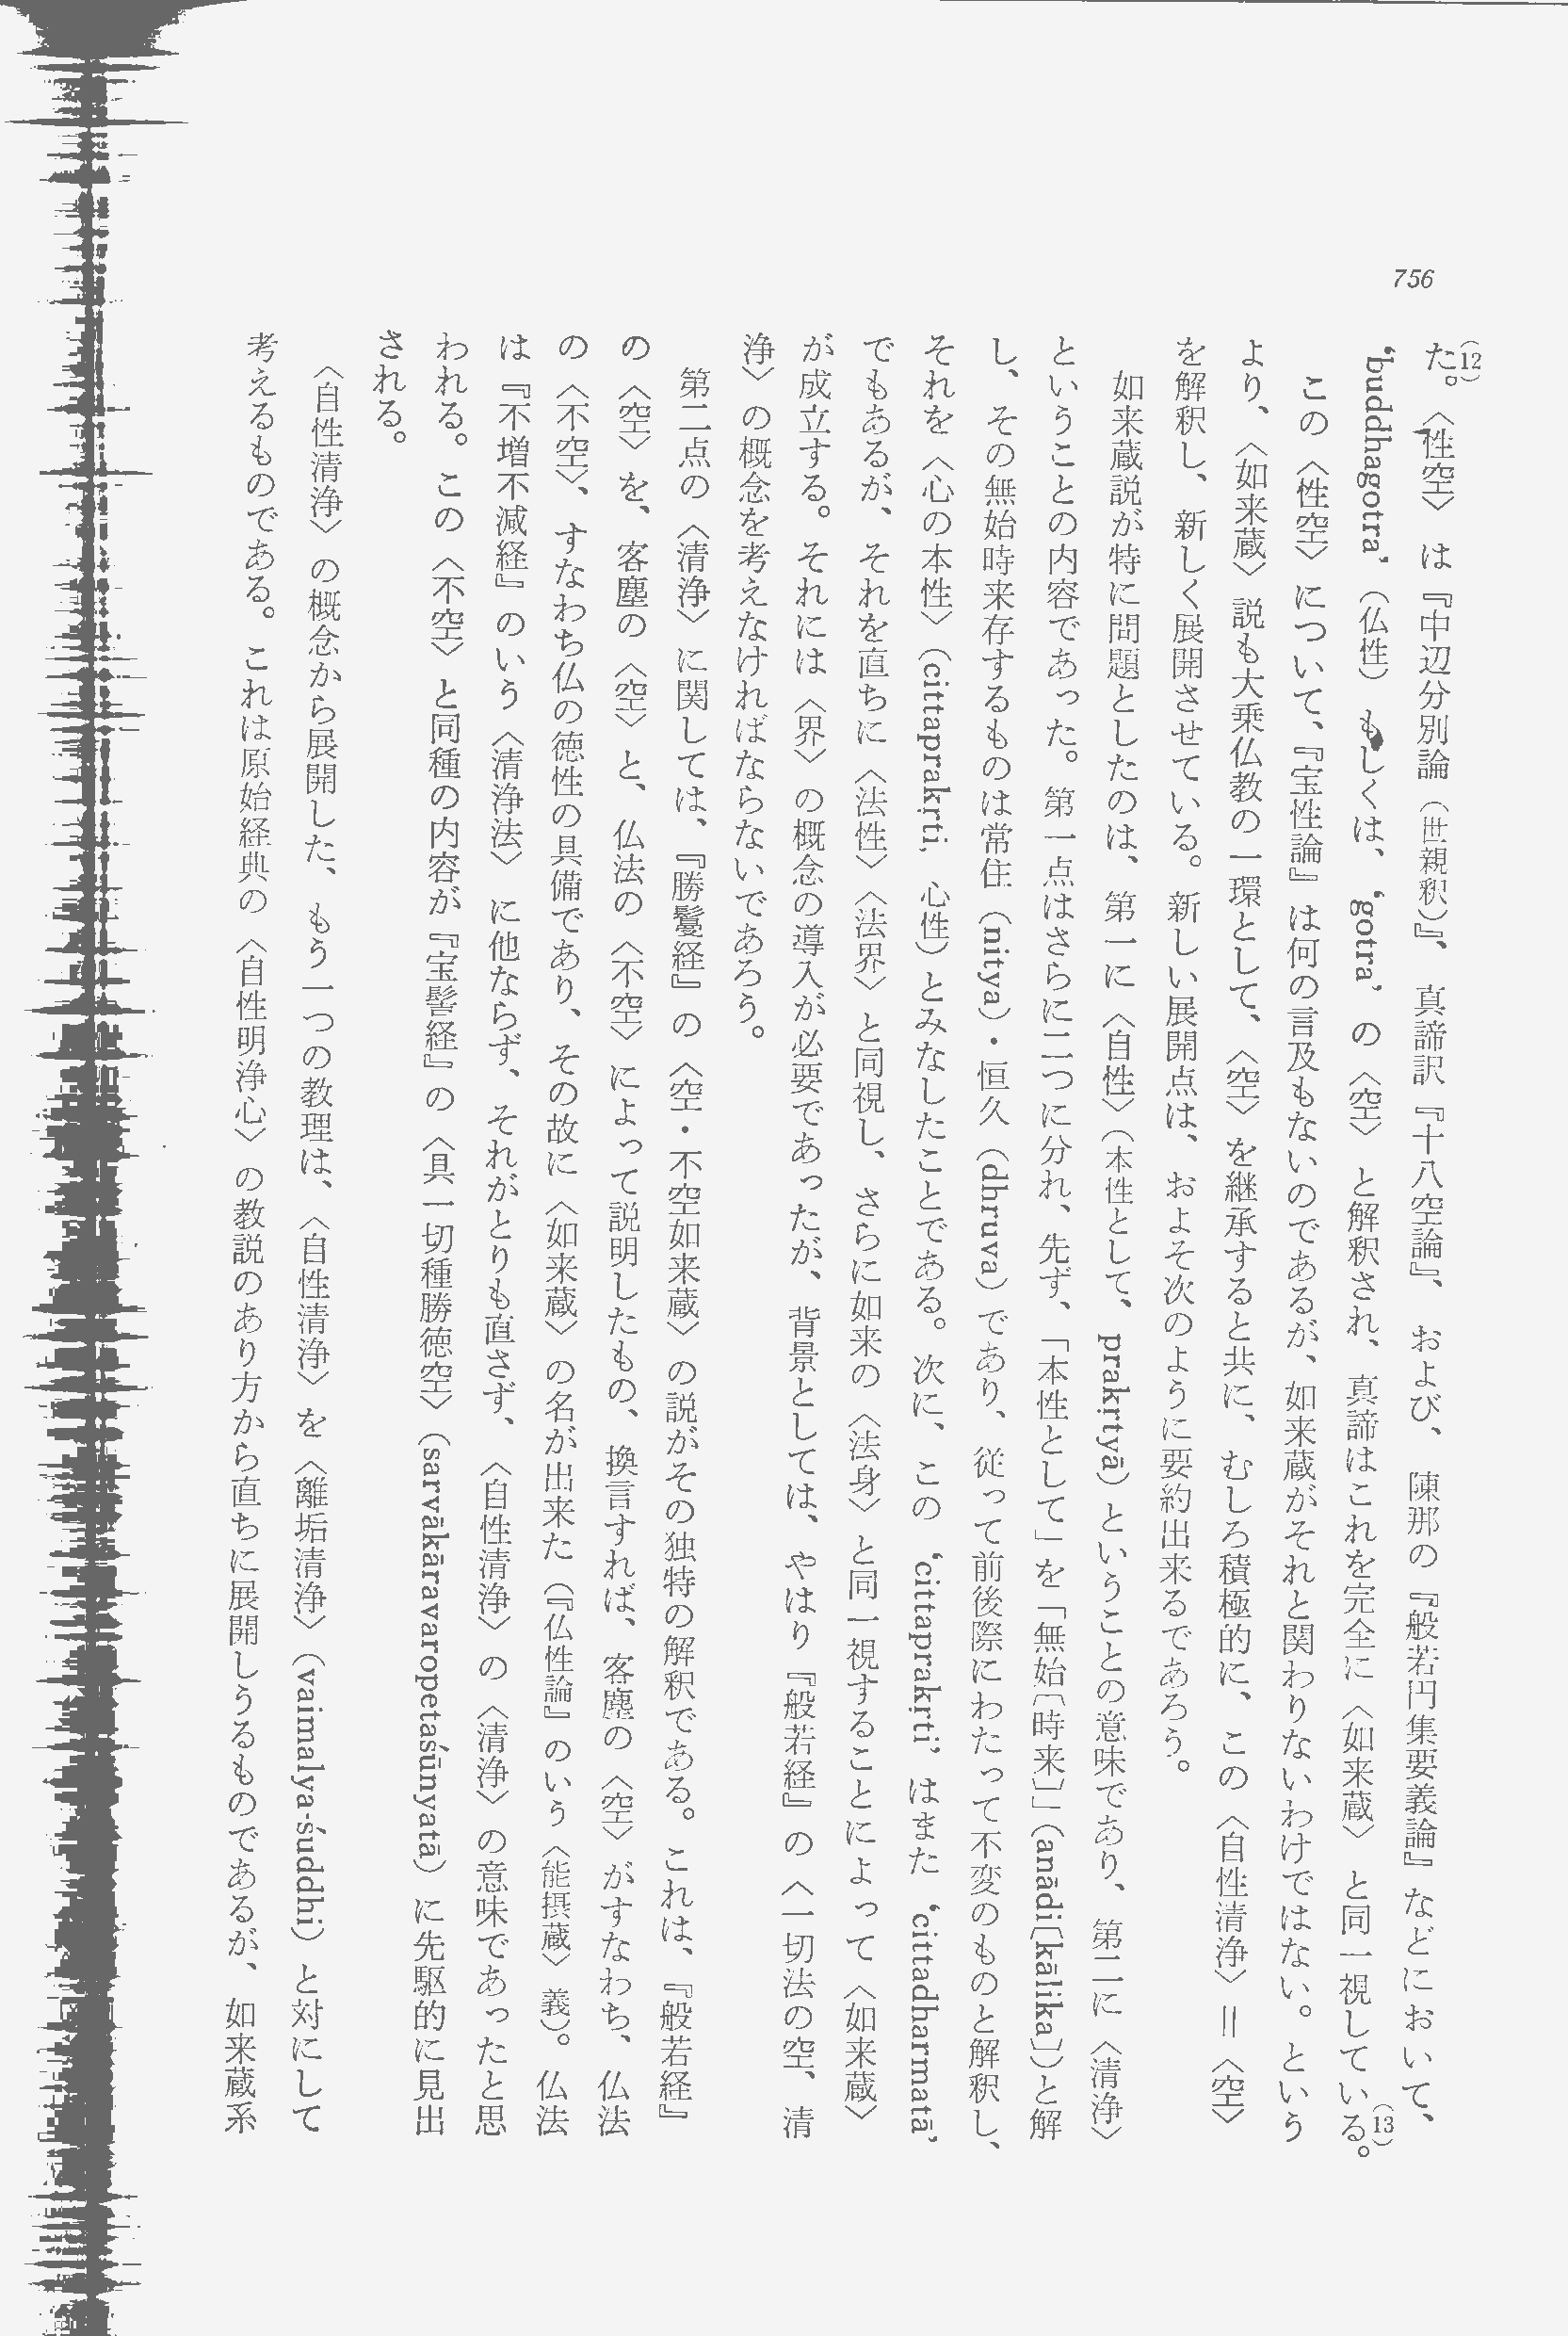 756
た。(12)〈性空〉は『中辺分別論（世親釈）』、真諦訳『十八空論』、および、陳那の『般若円集要義論』などにおいて、
‘buddhagotra’（仏性）もしくは、‘gotra’の〈空〉と解釈され、真諦はこれを完全に〈如来蔵〉と同一視している。(13)
この〈性空〉について、『宝性論』は何の言及もないのであるが、如来蔵がそれと関わりないわけではない。という
より、〈如来蔵〉説も大乗仏教の一環として、〈空〉を継承すると共に、むしろ積極的に、この〈自性清浄〉＝〈空〉
を解釈し、新しく展開させている。新しい展開点は、およそ次のように要約出来るであろう。
如来蔵説が特に問題としたのは、第一に〈自性〉（本性として、prakṛtyā）ということの意味であり、第二に〈清浄〉
ということの内容であった。第一点はさらに二つに分れ、先ず、「本性として」を「無始〔時来〕」（anādi〔kālika〕）と解
し、その無始時来存するものは常住（nitya）・恒久（dhruva）であり、従って前後際にわたって不変のものと解釈し、
それを〈心の本性〉（cittaprakṛti, 心性）とみなしたことである。次に、この‘cittaprakṛti’はまた‘cittadharmatā’
でもあるが、それを直ちに〈法性〉〈法界〉と同視し、さらに如来の〈法身〉と同一視することによって〈如来蔵〉
が成立する。それには〈界〉の概念の導入が必要であったが、背景としては、やはり『般若経』の〈一切法の空、清
浄〉の概念を考えなければならないであろう。
第二点の〈清浄〉に関しては、『勝鬘経』の〈空・不空如来蔵〉の説がその独特の解釈である。これは、『般若経』
の〈空〉を、客塵の〈空〉と、仏法の〈不空〉によって説明したもの、換言すれば、客塵の〈空〉がすなわち、仏法
の〈不空〉、すなわち仏の徳性の具備であり、その故に〈如来蔵〉の名が出来た（『仏性論』のいう〈能摂蔵〉義）。仏法
は『不増不減経』のいう〈清浄法〉に他ならず、それがとりも直さず、〈自性清浄〉の〈清浄〉の意味であったと思
われる。この〈不空〉と同種の内容が『宝髻経』の〈具一切種勝徳空〉（sarvākāravaropetaśūnyatā）に先駆的に見出
される。
〈自性清浄〉の概念から展開した、もう一つの教理は、〈自性清浄〉を〈離垢清浄〉（vaimalya-śuddhi）と対にして
考えるものである。これは原始経典の〈自性明浄心〉の教説のあり方から直ちに展開しうるものであるが、如来蔵系